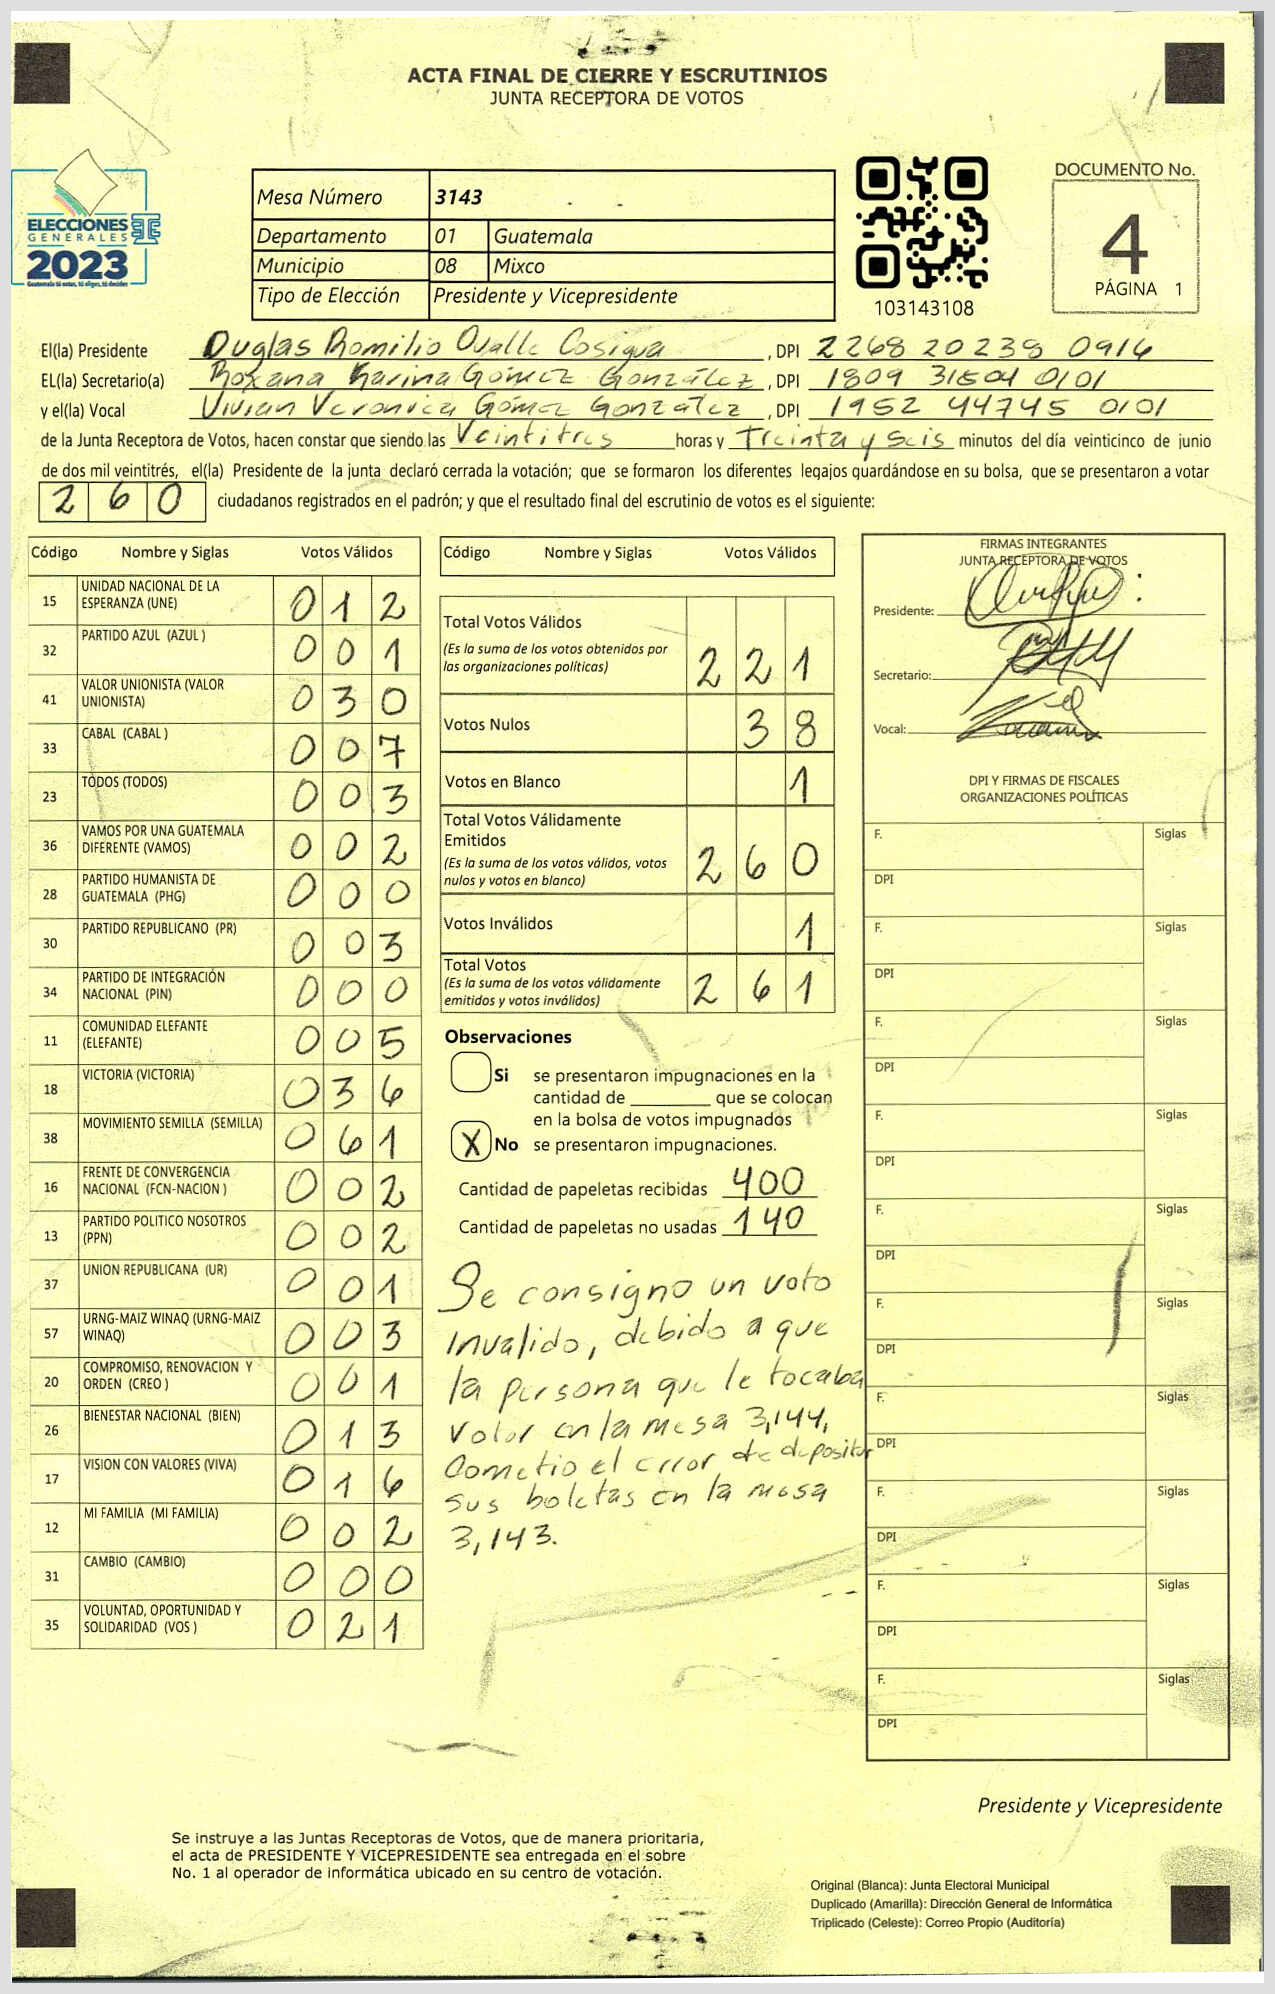 ACTA FINAL DE CIERRE Y ESCRUTINIOS
JUNTA RECEPTORA DE VOTOS
ELECCIONES
GENERALES
2023
Guatemala tú votas, tú eliges, tú decides
Mesa Número 3143
Departamento 01 Guatemala
Municipio 08 Mixco
Tipo de Elección Presidente y Vicepresidente
103143108
DOCUMENTO No.
4
PÁGINA 1
El(la) Presidente Duglas Romilio Ovalle Cosigua, DPI 2268 20238 0916
EL(la) Secretario(a) Roxana Karina Gómez González, DPI 1809 31504 0101
y el(la) Vocal Vivian Veronica Gómez González, DPI 1952 44745 0101
de la Junta Receptora de Votos, hacen constar que siendo las Veintitres horas y Treinta y seis minutos del día veinticinco de junio
de dos mil veintitrés, el(la) Presidente de la junta declaró cerrada la votación; que se formaron los diferentes legajos guardándose en su bolsa, que se presentaron a votar
260 ciudadanos registrados en el padrón; y que el resultado final del escrutinio de votos es el siguiente:
Código Nombre y Siglas Votos Válidos
15 UNIDAD NACIONAL DE LA ESPERANZA (UNE) 012
32 PARTIDO AZUL (AZUL ) 001
41 VALOR UNIONISTA (VALOR UNIONISTA) 030
33 CABAL (CABAL ) 007
23 TODOS (TODOS) 003
36 VAMOS POR UNA GUATEMALA DIFERENTE (VAMOS) 002
28 PARTIDO HUMANISTA DE GUATEMALA (PHG) 000
30 PARTIDO REPUBLICANO (PR) 003
34 PARTIDO DE INTEGRACIÓN NACIONAL (PIN) 000
11 COMUNIDAD ELEFANTE (ELEFANTE) 005
18 VICTORIA (VICTORIA) 036
38 MOVIMIENTO SEMILLA (SEMILLA) 061
16 FRENTE DE CONVERGENCIA NACIONAL (FCN-NACION ) 002
13 PARTIDO POLITICO NOSOTROS (PPN) 002
37 UNION REPUBLICANA (UR) 001
57 URNG-MAIZ WINAQ (URNG-MAIZ WINAQ) 003
20 COMPROMISO, RENOVACION Y ORDEN (CREO ) 001
26 BIENESTAR NACIONAL (BIEN) 013
17 VISION CON VALORES (VIVA) 016
12 MI FAMILIA (MI FAMILIA) 002
31 CAMBIO (CAMBIO) 000
35 VOLUNTAD, OPORTUNIDAD Y SOLIDARIDAD (VOS ) 021
Código Nombre y Siglas Votos Válidos
Total Votos Válidos
(Es la suma de los votos obtenidos por
las organizaciones políticas) 221
Votos Nulos 38
Votos en Blanco 1
Total Votos Válidamente
Emitidos
(Es la suma de los votos válidos, votos
nulos y votos en blanco) 260
Votos Inválidos 1
Total Votos
(Es la suma de los votos válidamente
emitidos y votos inválidos) 261
Observaciones
Si se presentaron impugnaciones en la
cantidad de ________ que se colocan
en la bolsa de votos impugnados
X No se presentaron impugnaciones.
Cantidad de papeletas recibidas 400
Cantidad de papeletas no usadas 140
Se consigno un voto
Invalido, debido a que
la persona que le tocaba
votar en la mesa 3,144,
Cometio el error de depositar
sus boletas en la mesa
3,143.
FIRMAS INTEGRANTES
JUNTA RECEPTORA DE VOTOS
Presidente:
Secretario:
Vocal:
DPI Y FIRMAS DE FISCALES
ORGANIZACIONES POLÍTICAS
F. Siglas
DPI
F. Siglas
DPI
F. Siglas
DPI
F. Siglas
DPI
F. Siglas
DPI
F. Siglas
DPI
F. Siglas
DPI
F. Siglas
DPI
F. Siglas
DPI
F. Siglas
DPI
Presidente y Vicepresidente
Se instruye a las Juntas Receptoras de Votos, que de manera prioritaria,
el acta de PRESIDENTE Y VICEPRESIDENTE sea entregada en el sobre
No. 1 al operador de informática ubicado en su centro de votación.
Original (Blanca): Junta Electoral Municipal
Duplicado (Amarilla): Dirección General de Informática
Triplicado (Celeste): Correo Propio (Auditoría)